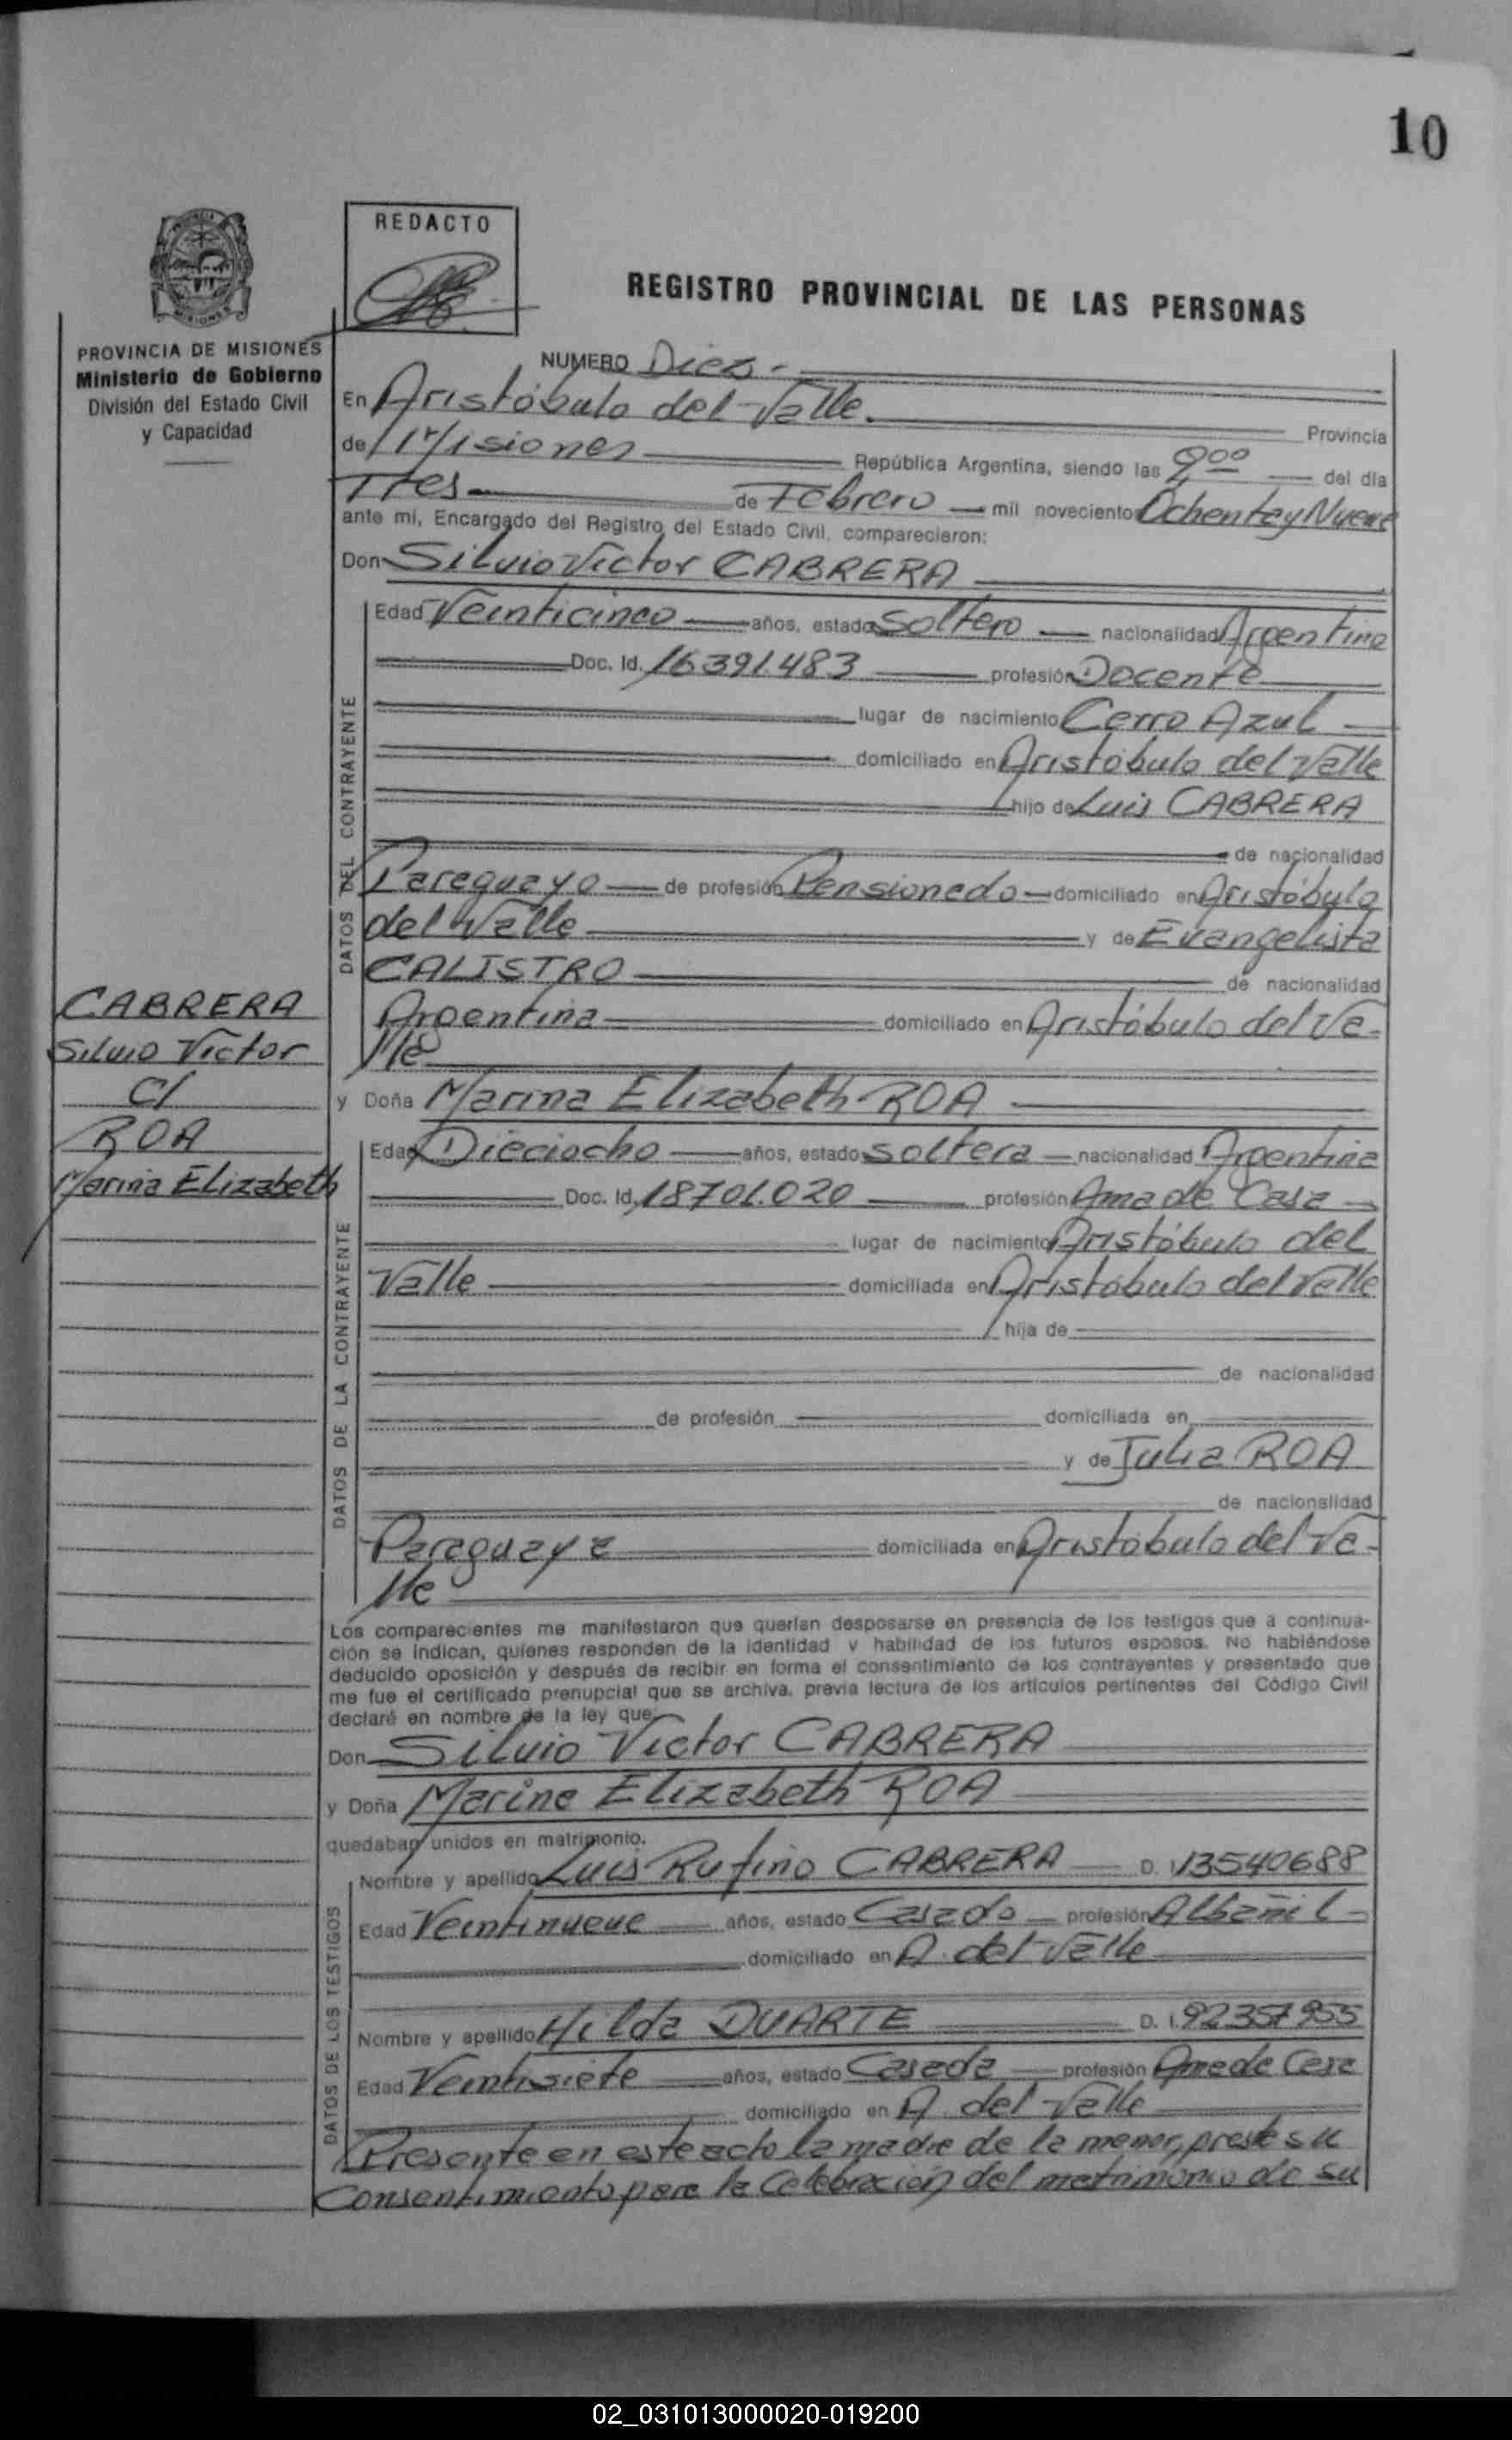 10
REDACTO
REGISTRO PROVINCIAL DE LAS PERSONAS
PROVINCIA DE MISIONES
Ministerio de Gobierno
División del Estado Civil
y Capacidad
NUMERO Diez.-
En Aristóbulo del Valle.
Provincia
de Misiones República Argentina, siendo las 9,00 del día
Tres de Febrero mil noveciento Ochenta y Nueve
ante mí, Encargado del Registro del Estado Civil, comparecieron:
Don Silvio Victor CABRERA
CABRERA
Silvio Victor
C/
ROA
Marina Elizabeth
DATOS DEL CONTRAYENTE
Edad Veinticinco años, estado Soltero nacionalidad Argentino
Doc. Id. 16391.483 profesión Docente
lugar de nacimiento Cerro Azul
domiciliado en Aristóbulo del Valle
hijo de Luis CABRERA
de nacionalidad
Paraguayo de profesión Pensionado domiciliado en Aristóbulo
del Valle y de Evangelista
CALISTRO de nacionalidad
Argentina domiciliado en Aristóbulo del Va-
lle
y Doña Marina Elizabeth ROA
DATOS DE LA CONTRAYENTE
Edad Dieciocho años, estado Soltera nacionalidad Argentina
Doc. Id. 18701.020 profesión Ama de Casa
lugar de nacimiento Aristóbulo del
Valle domiciliada en Aristóbulo del Valle
hija de
de nacionalidad
de profesión domiciliada en
y de Julia ROA
de nacionalidad
Paraguaya domiciliada en Aristóbulo del Va-
lle
Los comparecientes me manifestaron que querían desposarse en presencia de los testigos que a continua-
ción se indican, quienes responden de la identidad y habilidad de los futuros esposos. No habiéndose
deducido oposición y después de recibir en forma el consentimiento de los contrayentes y presentado que
me fue el certificado prenupcial que se archiva, previa lectura de los artículos pertinentes del Código Civil
declaré en nombre de la ley que:
Don Silvio Victor CABRERA
y Doña Marina Elizabeth ROA
quedaban unidos en matrimonio.
DATOS DE LOS TESTIGOS
Nombre y apellido Luis Rufino CABRERA D. I. 13540688
Edad Veintinueve años, estado Casado profesión Albañil
domiciliado en A. del Valle
Nombre y apellido Hilda DUARTE D. I. 92357955
Edad Veintisiete años, estado Casada profesión Ama de Casa
domiciliado en A. del Valle
Presente en este acto la madre de la menor, presta su
Consentimiento para la Celebración del matrimonio de su
02_031013000020-019200